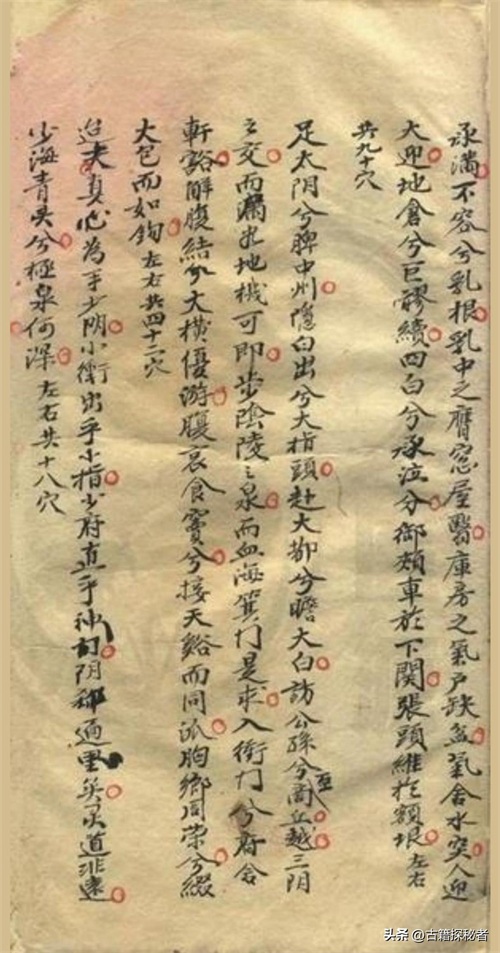 承滿不容兮乳根乳中之膺窓屋醫庫房之氣戶缺盆氣舍水突人迎
大迎地倉兮巨髎續四白兮承泣分御頰車於下関張頭維於額垠左右
共九十穴
足太阴兮脾中州隱白出兮大指頭赴大都兮瞻大白訪公孫兮至商丘越三阴
之交而漏谷地機可即步陰陵之泉而血海箕门是求入衝门兮府舍
軒豁解腹結兮大橫優游腹哀食竇兮接天谿而同派胸鄉周荣兮綴
大包而如鉤左右共四十二穴
迨夫真心為手少阴小衝出乎小指少府直乎神门阴郄通里灵道非遠
少海青灵兮極泉何深左右共十八穴
头条 @古籍探秘者